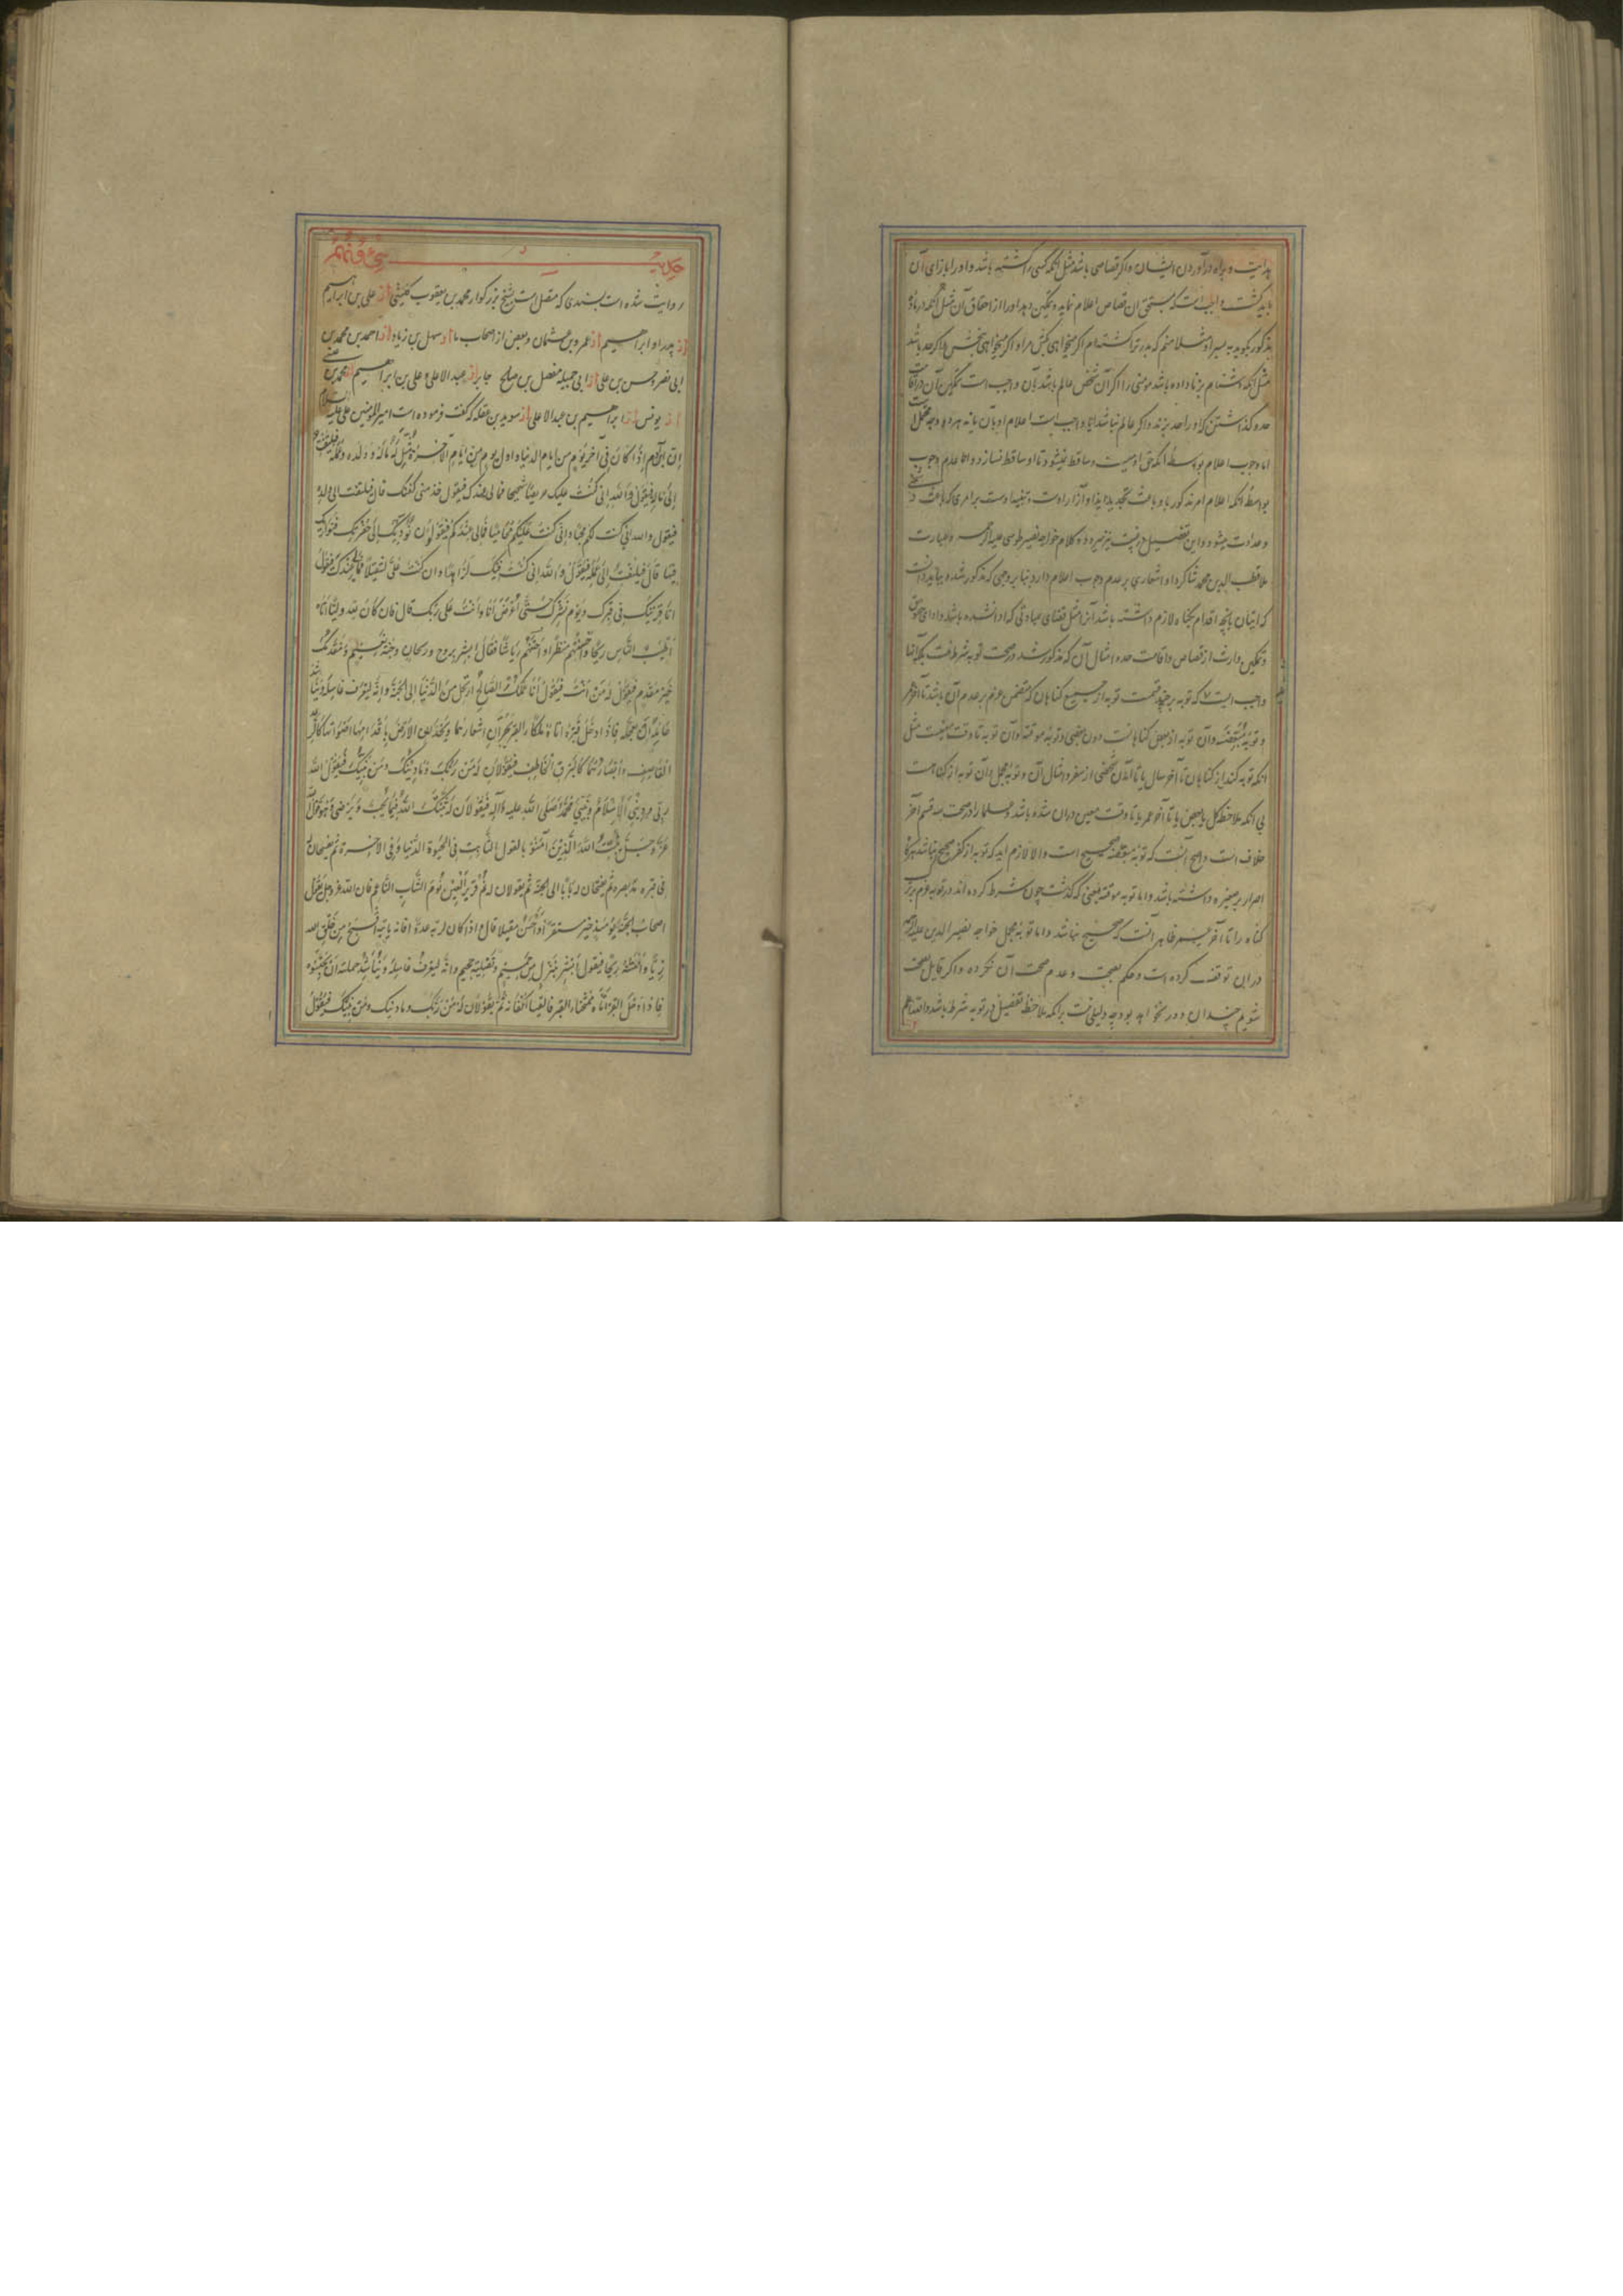 هدایت و براه درآوردن ایشان و اگر قصاصی باشد مثل آنکه کسی را کشته باشد و او را بازای آن
باید کشت واجبست که مستحق آن قصاص اعلام نماید و تمکین دهد او را از احقاق آن مثل آنکه در ماده
مذکور بگوید به پسر او مثلا منم که پدر ترا کشته‌ام اگر میخواهی بکش مرا و اگر میخواهی ببخش و اگر حد باشد
مثل آنکه دشنام بزنا داده باشد مومنی را اگر آن شخص عالم باشد بآن واجب است تمکین آن در اقامت
حد و گذاشتن که او را حد بزند و اگر عالم نباشد آیا واجب است اعلام او بآن یا نه هر دو وجه محتمل است
اما وجوب اعلام بواسطه آنکه حق آدمیست و ساقط نمیشود تا او ساقط نسازد و اما عدم وجوب
بواسطه آنکه اعلام امر مذکور باو باعث تجدید ایذا و آزار اوست و تنبیه اوست بر امری که باعث
و عداوت میشود و این تفصیل در غیبت نیز میرود و کلام خواجه نصیر طوسی علیه الرحمه و عبارت
ملا قطب الدین محمد شاگرد او اشعاری بر عدم وجوب اعلام دارد بنا بر وجهی که مذکور شد و بباید دانست
که اتیان بآنچه اقدام بگناه لازم داشته باشد آن مثل قضای عبادتی که ادا نشده باشد و ادای حقوق
و تمکین وارث از قصاص و اقامت حد و امثال آن که مذکور شد در صحت توبه شرط نیست بلکه آنها
واجب است که توبه بر چند قسمست توبه از جمیع گناهان که متضمن عزم بر عدم آن باشد تا آخر عمر
و توبه مبعضه و آن توبه از بعض گناهانست دون بعضی و توبه موقته و آن توبه تا وقت معینست مثل
آنکه توبه کند از گناهان تا آخر سال یا تا آمدن شخصی از سفر و امثال آن و توبه مجمل و آن توبه از گناه است
بی آنکه ملاحظه کل یا بعض یا تا آخر عمر یا تا وقت معین در آن شده باشد و علما را در صحت سه قسم آخر
خلاف است و اصح آنست که توبه مبعضه صحیح است و الا لازم آید که توبه از کفر صحیح نباشد هرگاه
اصرار بر صغیره داشته باشد و اما توبه موقته یعنی که گذشت چون شرط کرده‌اند در توبه عزم بر ترک
گناه را تا آخر عمر ظاهر آنست که صحیح نباشد و اما توبه مجمل خواجه نصیر الدین علیه الرحمه
در این توقف کرده است و حکم بصحت و عدم صحت آن نکرده و اگر قایل بصحت
شویم چندان دور نخواهد بود چه دلیلی نیست بر آنکه ملاحظه تفصیل در توبه شرط باشد و الله اعلم
حدیث سی و نهم
روایت شده است بسندی که متصل است بشیخ بزرگوار محمد بن یعقوب کلینی از علی بن ابراهیم
از پدر او ابراهیم از عمرو بن عثمان و بعض از اصحاب ما از سهل بن زیاد از احمد بن محمد بن
ابی نصر و حسن بن علی از ابی جمیله مفضل بن صالح جابر از عبد الاعلی و علی بن ابراهیم از محمد بن عیسی
از یونس از ابراهیم بن عبد الاعلی از سوید بن غفله که گفت فرموده است امیر المومنین علی علیه السلام
إن ابن آدم إذا کان فی آخر یوم من ایام الدنیا و اول یوم من ایام الآخرة مثل له ماله و ولده و عمله فیلتفت
إلی ماله فیقول و الله إنی کنت علیک حریصا شحیحا فما لی عندک فیقول خذ منی کفنک قال فیلتفت الی ولده
فیقول و الله إنی کنت لکم محبا و إنی کنت علیکم محامیا فما لی عندکم فیقولون نؤدیک إلی حفرتک فنواریک
فیها قال فیلتفت إلی عمله فیقول و الله انی کنت فیک لزاهدا و ان کنت علی لثقیلا فما لی عندک فیقول
انا قرینک فی قبرک و یوم نشرک حتی أعرض أنا و أنت علی ربک قال فان کان لله ولیا أتاه
أطیب الناس ریحا و أحسنهم منظرا و أحسنهم ریاشا فقال أبشر بروح و ریحان و جنة نعیم و مقدمک
خیر مقدم فیقول له من أنت فیقول أنا عملک الصالح ارتحل من الدنیا إلی الجنة و إنه لیعرف غاسله و یناشد
حامله أن یعجله فاذا ادخل قبره اتاه ملکا القبر یجران اشعارهما و یخدان الارض باقدامهما اصواتهما کالرعد
القاصف و أبصارهما کالبرق الخاطف فیقولان له من ربک و ما دینک و من نبیک فیقول الله
ربی و دینی الإسلام و نبیی محمد صلی الله علیه و آله فیقولان له ثبتک الله فیما یحب و یرضی و هو قول الله
عز و جل یثبت الله الذین آمنوا بالقول الثابت فی الحیوة الدنیا و فی الاخرة ثم یفسحان له
فی قبره مد بصره ثم یفتحان له بابا الی الجنة ثم یقولان له نم قریر العین نوم الشاب الناعم فان الله عز و جل یقول
اصحاب الجنة یومئذ خیر مستقرا و أحسن مقیلا قال و اذا کان لربه عدوا فانه یاتیه أقبح من خلق الله
زیا و أنتنه ریحا فیقول أبشر بنزل من حمیم و تصلیة جحیم و انه لیعرف غاسله و یناشد حملته ان یحبسوه
فاذا ادخل القبر أتاه ممتحنا القبر فالقیا اکفانه ثم یقولان له من ربک و ما دینک و من نبیک فیقول